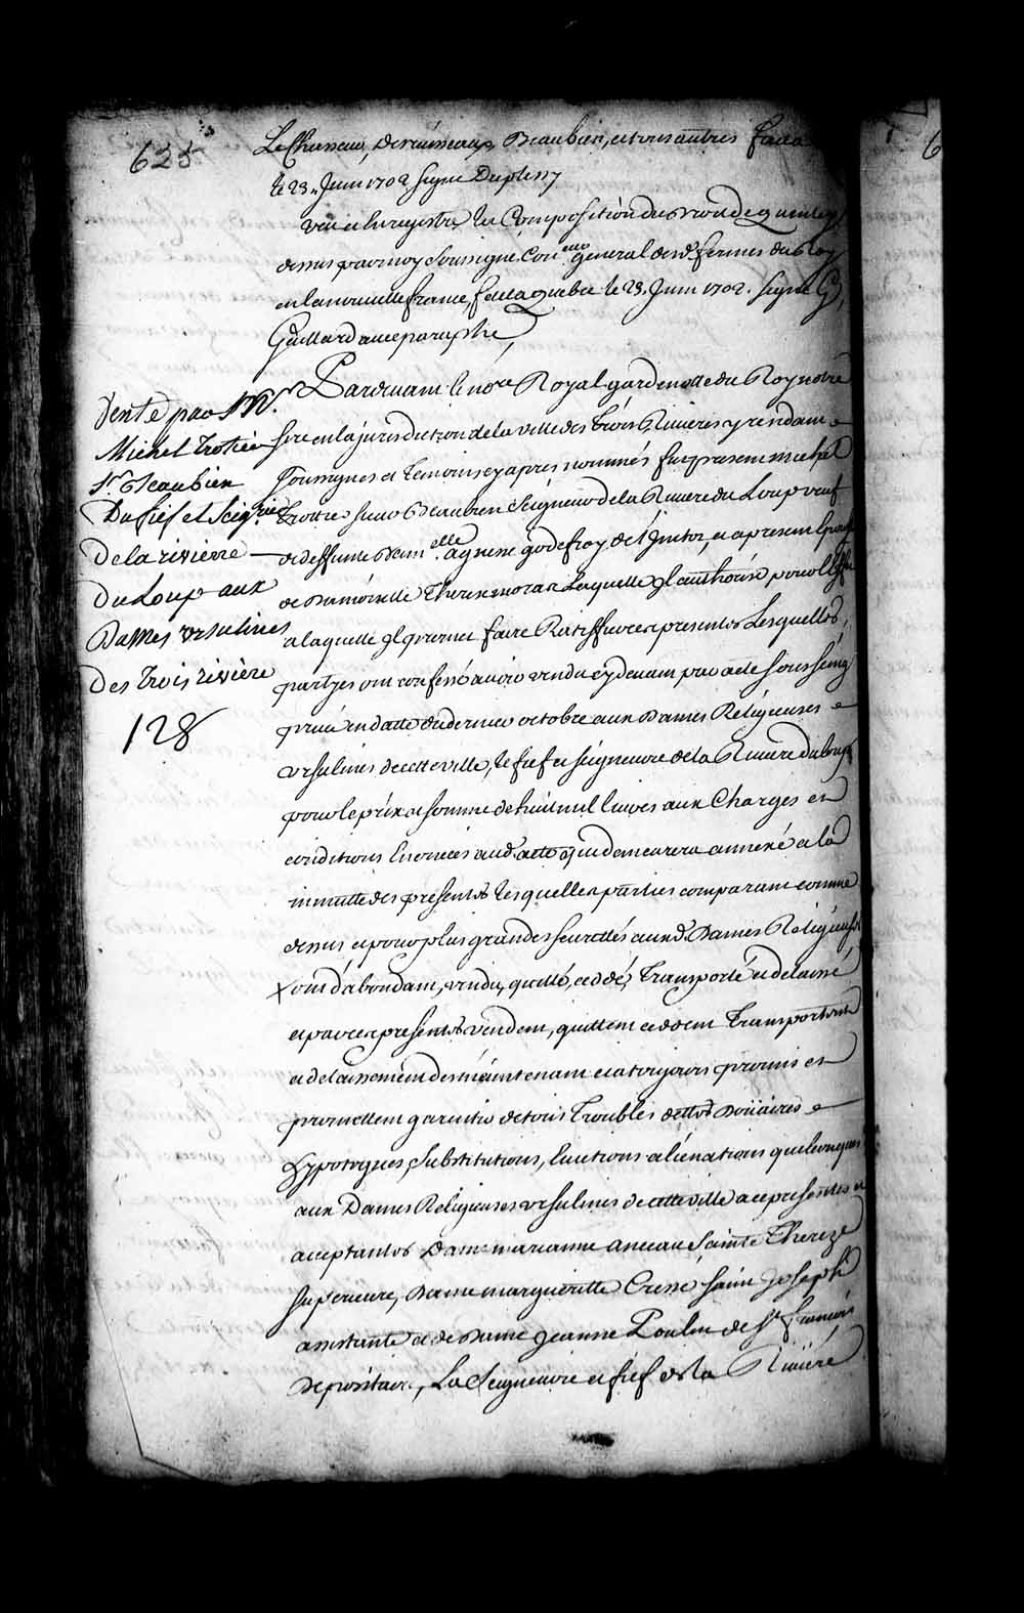 625
Le Chasseur, Desruisseaux Beaubien, et tous autres fait a
le 23. Juin 1702 signé Duplessy
veu et Enregistré la Composition du droit de quint cy
dessus par moy soussigné, Con.er general des d. fermes du Roy
en la nouvelle france, fait a Quebec le 23. Juin 1702. signé G
Gaillard avec paraphe,
Vente par Mr.
Michel Trotier
Sr. Beaubien
Du fief et Seig.rie
De la rivierre
Du Loup aux
Dasmes ursulines
Des trois rivière
128
Pardevant le nore. Royal gardenotte du Roy notre
Sire en la jurisdiction de la ville des trois Rivieres y residant
Soussignes et temoins cy apres nommés fut present michel
trottier sieur Beaubien Seigneur de la Riviere du Loup veuf
de deffunte Dam.elle agnesse godefroy de Lintor, et a present
de Damoiselle Therese moral Laquelle il authorise pour l'effet
a laquelle il promet faire Ratiffier ces presentes Lesquelles
partyes ont confessé avoir vendu cy devant par acte sous seing
privé en datte du dernier octobre aux Dames Réligieuses
ursulines de cette ville, le fief et seigneurie de la Riviere du loup
pour le prix et somme de huit mil livres aux Charges et
conditions Enoncées aud. acte qui demeurera annexé a la
minutte des presentes lesquelles parties comparant comme
dessus, et pour plus grandes seuretés auxd. Dames Religieuses
x ont d'abondant, vendu, quitté, ceddé, Transporté et delaissé
et par ces presentes vendent, quittent ceddent Transportent
et delaissent des maintenant et a toujours promis et
promettent garentir de tous Troubles dettes Doüaires
hypoteques, substitutions, Evictions alienations quelconques
aux Dames Religieuses ursulines de cette ville a ce presentes et
aceptantes Dame marianne anceau Sainte Thereze
superieure, Dame margueritte Cressé saint Joseph
assistante et de Dame Jeanne Poulin de St. francois
depositaire, La Seigneurie et fief de la Riviere